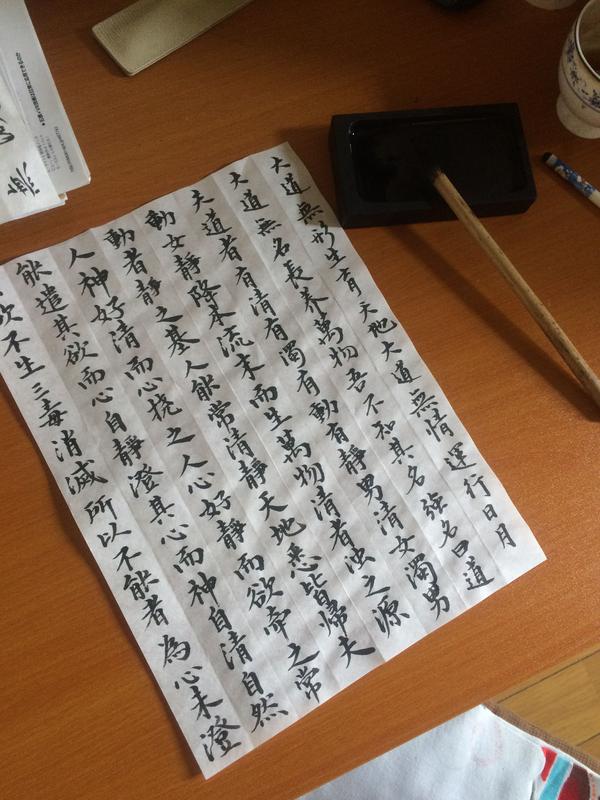 大道無形生育天地大道無情運行日月
大道無名長養萬物吾不知其名強名曰道
夫道者有清有濁有動有靜男清女濁男
動女靜降本流末而生萬物清者浊之源
動者靜之基人能常清靜天地悉皆歸夫
人神好清而心挠之人心好靜而欲牵之常
能遣其欲而心自靜澄其心而神自清自然
欲不生三毒消滅所以不能者為心未澄